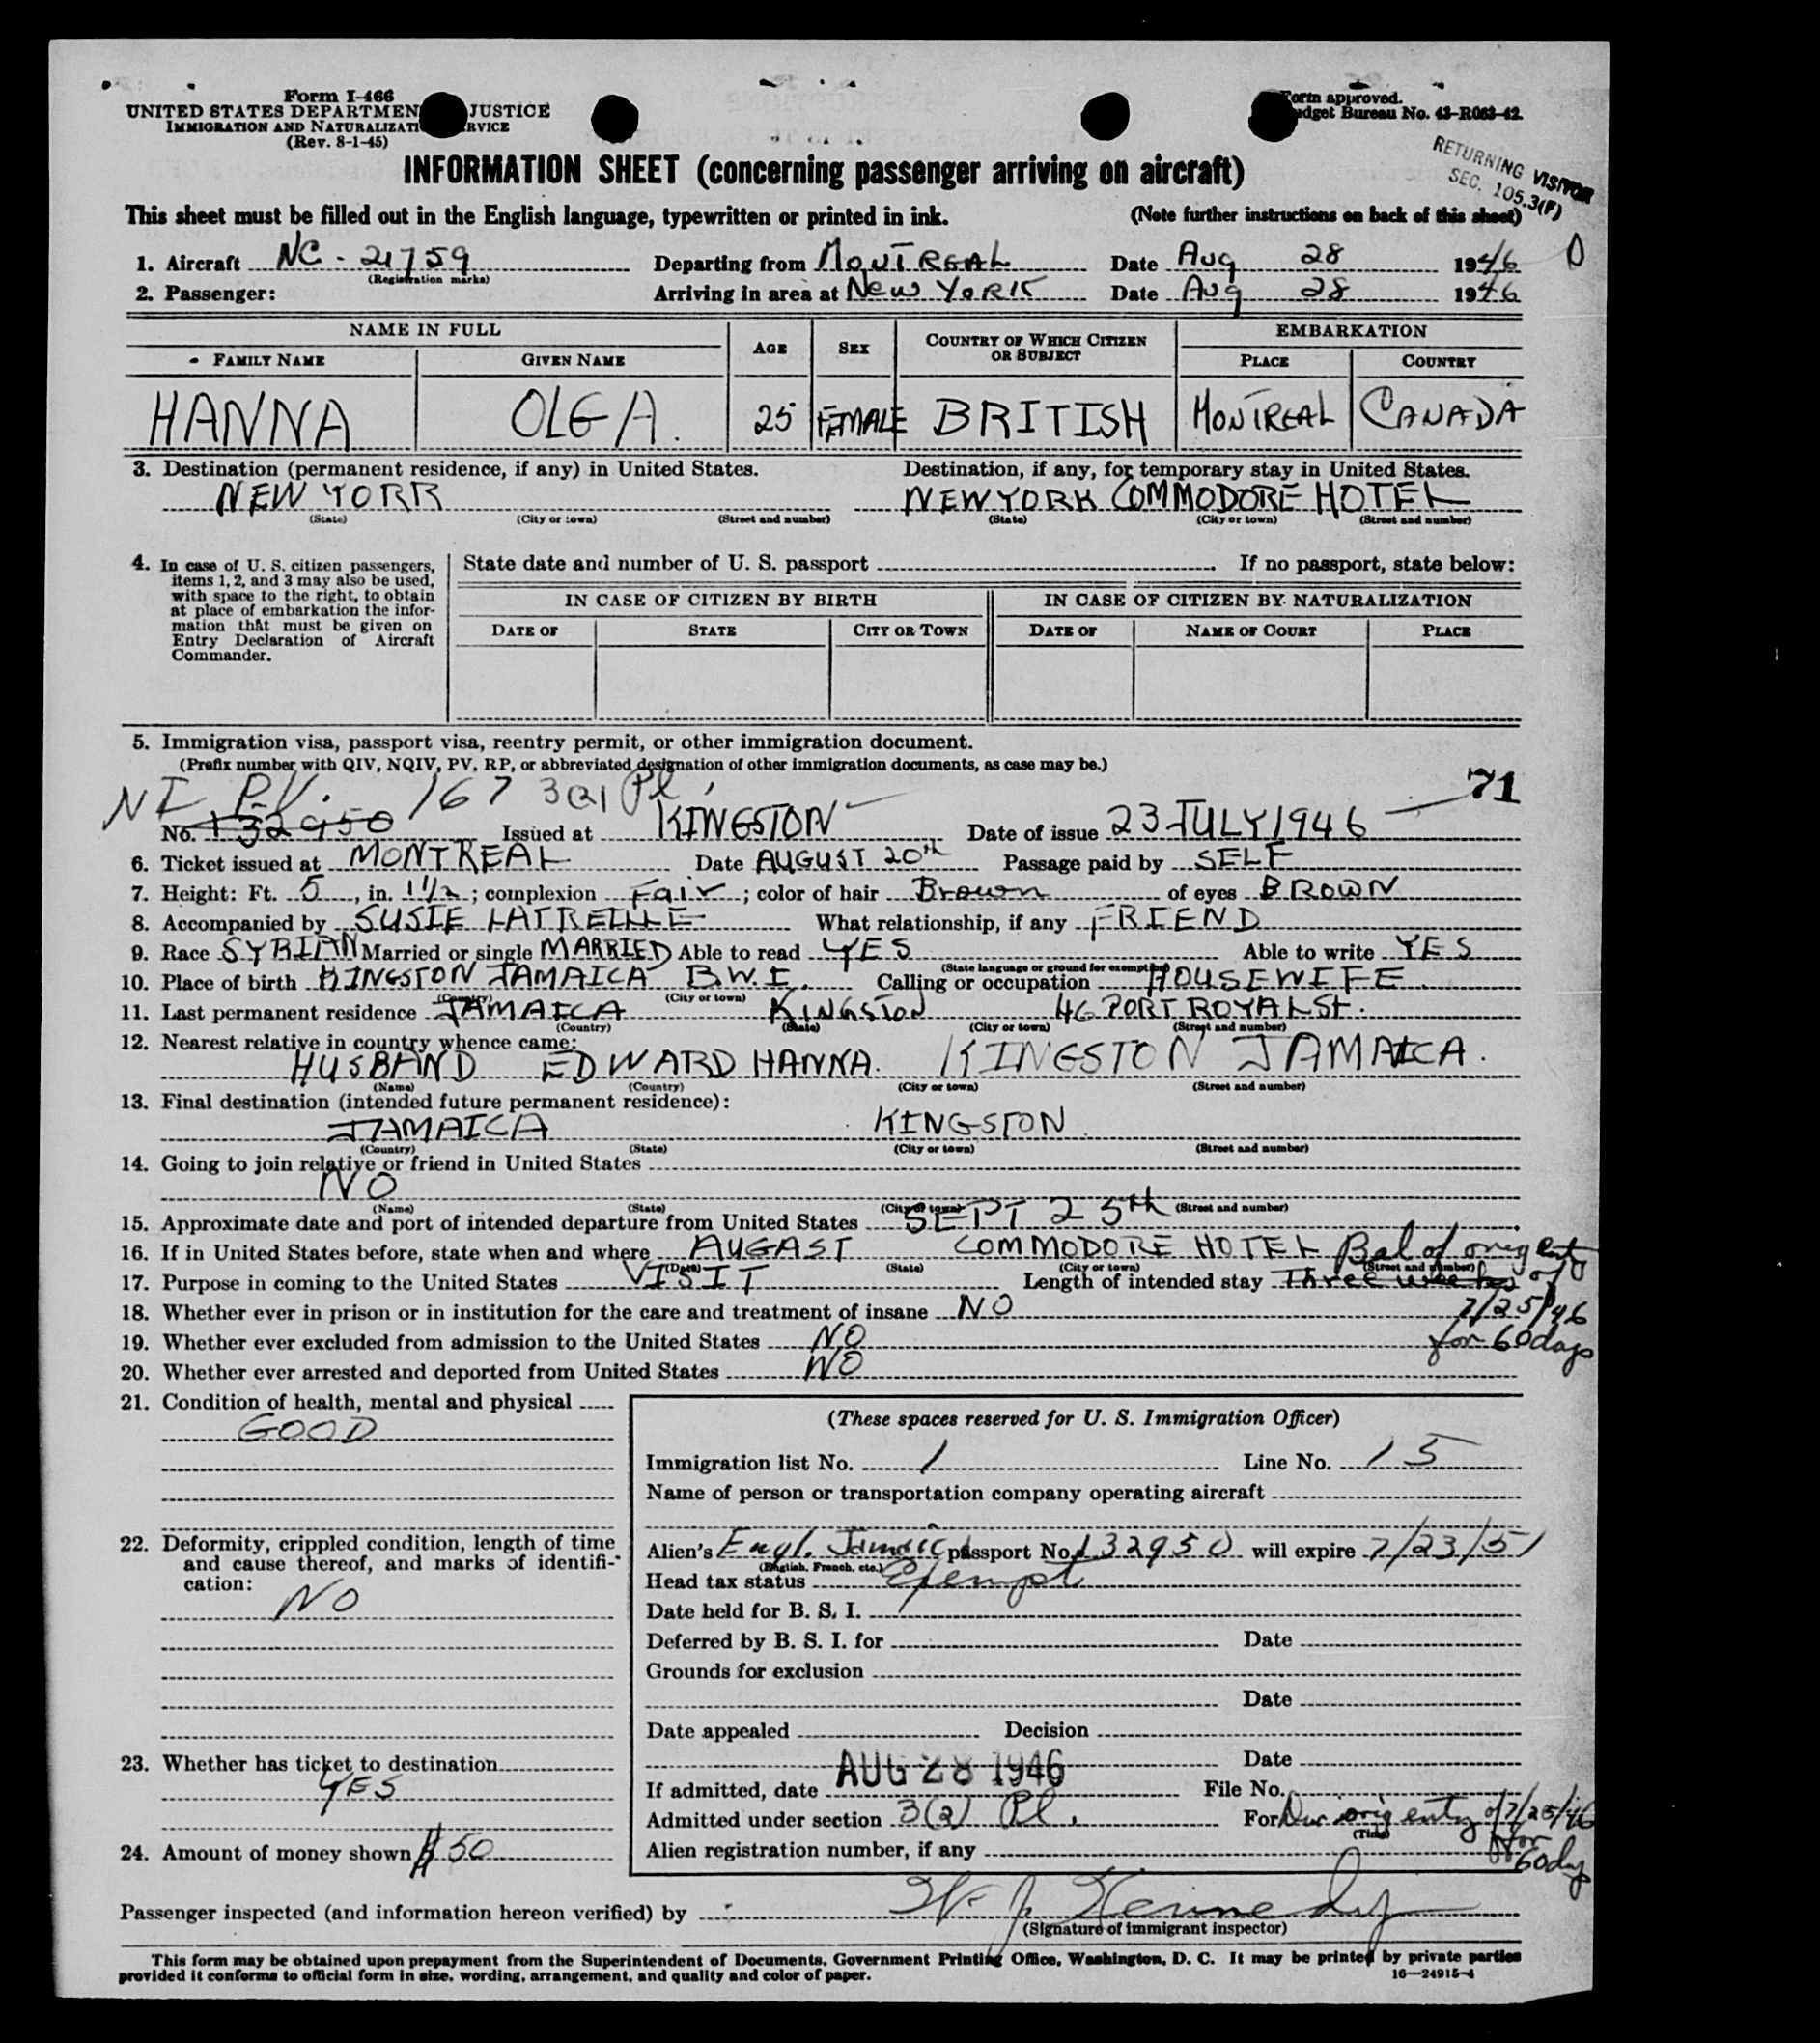 Form I-466
UNITED STATES DEPARTMEN JUSTICE
IMMIGRATION AND NATURALIZATI RVICE
(Rev. 8-1-45)
Form approved.
dget Bureau No. 43-R063-42.
RETURNING VISITOR
SEC. 105.3(F)
INFORMATION SHEET (concerning passenger arriving on aircraft)
This sheet must be filled out in the English language, typewritten or printed in ink. (Note further instructions on back of this sheet)
1. Aircraft NC - 21759 Departing from MONTREAL Date Aug 28 1946
(Registration marks)
2. Passenger: Arriving in area at NEW YORK Date Aug 28 1946
NAME IN FULL
FAMILY NAME GIVEN NAME AGE SEX COUNTRY OF WHICH CITIZEN OR SUBJECT EMBARKATION
PLACE COUNTRY
HANNA OLGA. 25 FEMALE BRITISH MONTREAL CANADA
3. Destination (permanent residence, if any) in United States. Destination, if any, for temporary stay in United States.
NEW YORK NEW YORK COMMODORE HOTEL
(State) (City or town) (Street and number) (State) (City or town) (Street and number)
4. In case of U. S. citizen passengers, items 1, 2, and 3 may also be used, with space to the right, to obtain at place of embarkation the information that must be given on Entry Declaration of Aircraft Commander.
State date and number of U. S. passport If no passport, state below:
IN CASE OF CITIZEN BY BIRTH IN CASE OF CITIZEN BY NATURALIZATION
DATE OF STATE CITY OR TOWN DATE OF NAME OF COURT PLACE
5. Immigration visa, passport visa, reentry permit, or other immigration document.
(Prefix number with QIV, NQIV, PV, RP, or abbreviated designation of other immigration documents, as case may be.)
NI P.V. 167 3(2) Pl 71
No. 132950 Issued at KINGSTON Date of issue 23 JULY 1946
6. Ticket issued at MONTREAL Date AUGUST 20th Passage paid by SELF
7. Height: Ft. 5, in. 1 1/2; complexion Fair; color of hair Brown of eyes BROWN
8. Accompanied by SUSIE LATREILLE What relationship, if any FRIEND
9. Race SYRIAN Married or single MARRIED Able to read YES Able to write YES
(State language or ground for exemption)
10. Place of birth KINGSTON JAMAICA B.W.I. Calling or occupation HOUSEWIFE
(Country) (City or town)
11. Last permanent residence JAMAICA KINGSTON 46 PORT ROYAL St.
(Country) (State) (City or town) (Street and number)
12. Nearest relative in country whence came:
HUSBAND EDWARD HANNA. KINGSTON JAMAICA.
(Name) (Country) (City or town) (Street and number)
13. Final destination (intended future permanent residence):
JAMAICA KINGSTON
(Country) (State) (City or town) (Street and number)
14. Going to join relative or friend in United States
NO
(Name) (State) (City or town) (Street and number)
15. Approximate date and port of intended departure from United States SEPT 25th
16. If in United States before, state when and where AUGAST COMMODORE HOTEL Bal of orig Ent
(Date) (State) (City or town) (Street and number)
17. Purpose in coming to the United States VISIT Length of intended stay Three weeks of
18. Whether ever in prison or in institution for the care and treatment of insane NO 7/25/46
19. Whether ever excluded from admission to the United States NO for 60 days
20. Whether ever arrested and deported from United States NO
21. Condition of health, mental and physical
GOOD
22. Deformity, crippled condition, length of time and cause thereof, and marks of identification:
NO
23. Whether has ticket to destination
YES
24. Amount of money shown $50
(These spaces reserved for U. S. Immigration Officer)
Immigration list No. 1 Line No. 15
Name of person or transportation company operating aircraft
Alien's Engl. Jamaic passport No. 132950 will expire 7/23/51
(English, French, etc.)
Head tax status Exempt
Date held for B. S. I.
Deferred by B. S. I. for Date
Grounds for exclusion
Date
Date appealed Decision
Date
If admitted, date AUG 28 1946 File No.
Admitted under section 3(2) Pl. For Dur orig entry of 7/25/46
(Time)
for
Alien registration number, if any 60 dys
Passenger inspected (and information hereon verified) by W. J. Kennedy
(Signature of immigrant inspector)
This form may be obtained upon prepayment from the Superintendent of Documents, Government Printing Office, Washington, D. C. It may be printed by private parties
provided it conforms to official form in size, wording, arrangement, and quality and color of paper. 16—24915-4